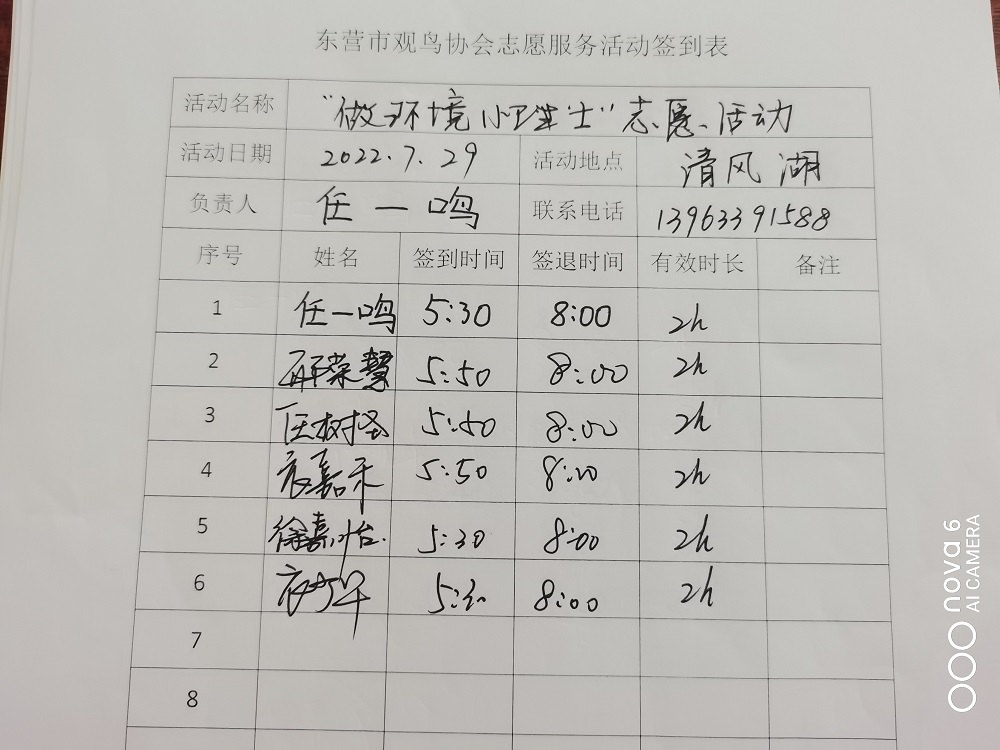 东营市观鸟协会志愿服务活动签到表
活动名称 “做环境小卫士”志愿活动
活动日期 2022.7.29 活动地点 清风湖
负责人 任一鸣 联系电话 13963391588
序号 姓名 签到时间 签退时间 有效时长 备注
1 任一鸣 5:30 8:00 2h
2 荣慧 5:50 8:00 2h
3 任树 5:50 8:00 2h
4 嘉禾 5:50 8:00 2h
5 徐嘉怡 5:30 8:00 2h
6 5:30 8:00 2h
7
8
nova 6
AI CAMERA